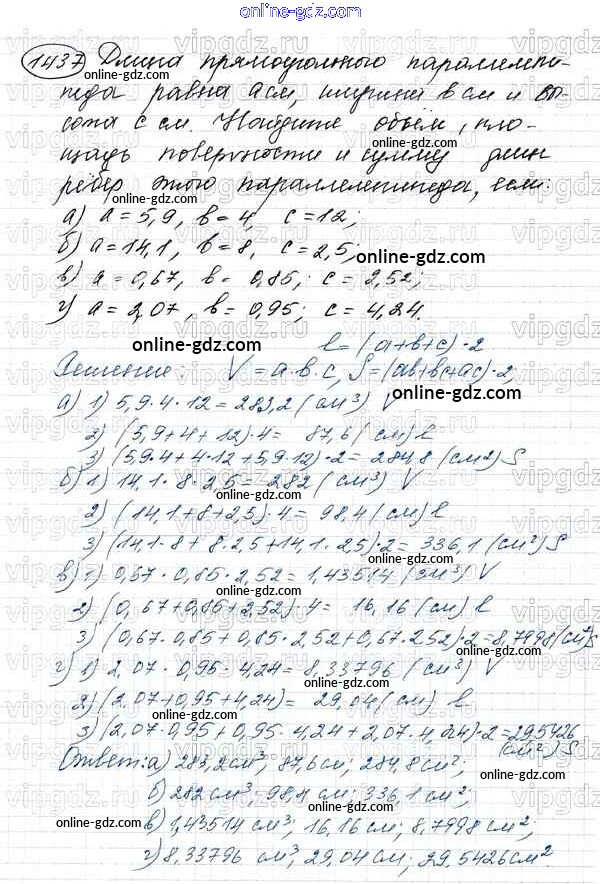 online-gdz.com
1437 Длина прямоугольного параллелепи-
педа равна a см, ширина b см и вы-
сота c см. Найдите объём, пло-
щадь поверхности и сумму длин
рёбер этого параллелепипеда, если:
а) a = 5,9, b = 4, c = 12;
б) a = 14,1, b = 8, c = 2,5;
в) a = 0,67, b = 0,85; c = 2,52;
г) a = 2,07, b = 0,95; c = 4,24.
l = (a+b+c)·2
Решение: V = a·b·c, S = (ab+bc+ac)·2,
а) 1) 5,9·4·12 = 283,2 (см³) V
2) (5,9+4+12)·4 = 87,6 (см) l
3) (5,9·4+4·12+5,9·12)·2 = 284,8 (см2) S
б) 1) 14,1·8·2,5 = 282 (см³) V
2) (14,1+8+2,5)·4 = 98,4 (см) l
3) (14,1·8+8·2,5+14,1·2,5)·2 = 336,1 (см²) S
в) 1) 0,67·0,85·2,52 = 1,43514 (см³) V
2) (0,67+0,85+2,52)·4 = 16,16 (см) l
3) (0,67·0,85+0,85·2,52+0,67·2,52)·2 = 8,7998 (см²) S
г) 1) 2,07·0,95·4,24 = 8,33796 (см³) V
2) (2,07+0,95+4,24) = 29,04 (см) l
3) (2,07·0,95+0,95·4,24+2,07·4,24)·2 = 29,5426
(см²) S
Ответ: а) 283,2 см³; 87,6 см; 284,8 см²;
б) 282 см³; 98,4 см; 336,1 см²;
в) 1,43514 см³; 16,16 см; 8,7998 см²;
г) 8,33796 см³; 29,04 см; 29,5426 см².